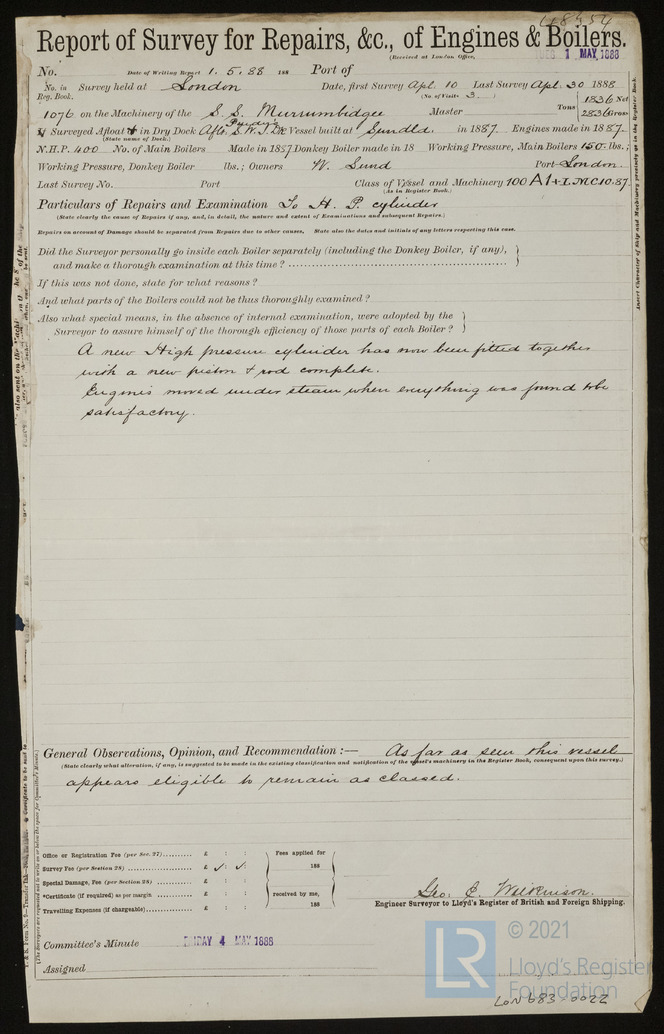 48554
Report of Survey for Repairs, &c., of Engines & Boilers.
(Received at London Office, 1 MAY, 1888
No. Date of Writing Report 1. 5. 88 188 Port of
No. in Reg. Book. Survey held at London Date, first Survey Apl. 10 Last Survey Apl. 30 1888
(No. of Visits 3.)
1076 on the Machinery of the S. S. Murrumbidgee Master Tons 1836 Net 2836 Gross
Surveyed Afloat & in Dry Dock Aflo. S.W.I. Dk Vessel built at Sundld. in 1887. Engines made in 1887.
(State name of Dock.)
N.H.P. 400 No. of Main Boilers Made in 1887 Donkey Boiler made in 18 Working Pressure, Main Boilers 150 lbs.;
Working Pressure, Donkey Boiler lbs.; Owners W. Lund Port London.
Last Survey No. Port Class of Vessel and Machinery 100 A1 + LMC 10.87.
(As in Register Book.)
Particulars of Repairs and Examination To H. P. cylinder
(State clearly the cause of Repairs if any, and, in detail, the nature and extent of Examinations and subsequent Repairs.)
Repairs on account of Damage should be separated from Repairs due to other causes. State also the dates and initials of any letters respecting this case.
Did the Surveyor personally go inside each Boiler separately (including the Donkey Boiler, if any),
and make a thorough examination at this time?
If this was not done, state for what reasons?
And what parts of the Boilers could not be thus thoroughly examined?
Also what special means, in the absence of internal examination, were adopted by the
Surveyor to assure himself of the thorough efficiency of those parts of each Boiler?
A new High pressure cylinder has now been fitted together
with a new piston & rod complete.
Engines moved under steam when everything was found to be
satisfactory.
General Observations, Opinion, and Recommendation :— As far as seen this vessel
(State clearly what alteration, if any, is suggested to be made in the existing classification and notification of the vessel's machinery in the Register Book, consequent upon this survey.)
appears eligible to remain as classed.
Office or Registration Fee (per Sec. 27) £ : : Fees applied for
Survey Fee (per Section 28) £ : : 188
Special Damage, Fee (per Section 28) £ : :
*Certificate (if required) as per margin £ : : received by me,
Travelling Expenses (if chargeable) £ : : 188
Geo. C. Wilkinson.
Engineer Surveyor to Lloyd's Register of British and Foreign Shipping.
Committee's Minute FRIDAY 4 MAY 1888
Assigned
Insert Character of Ship and Machinery precisely as in the Register Book.
LR © 2021
Lloyd's Register
Foundation
LON 683-0022